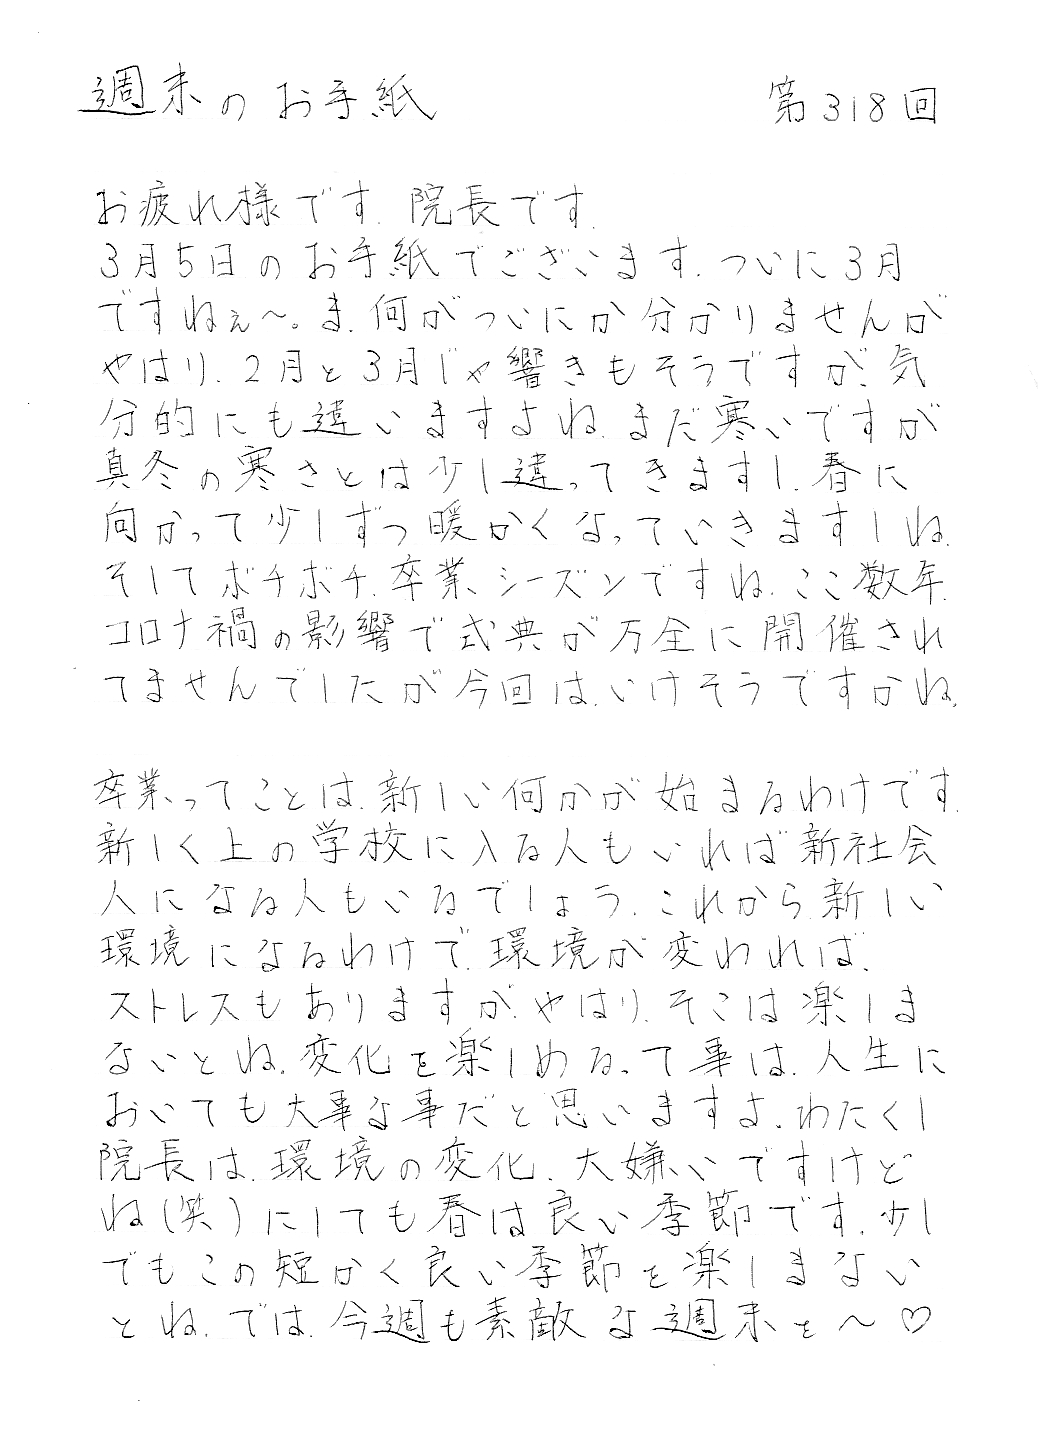 週末のお手紙 第318回
お疲れ様です、院長です、
3月5日のお手紙でございます、ついに3月
ですねぇ〜。ま、何がついにか分かりませんが
やはり、2月と3月じゃ響きもそうですが、気
分的にも違いますよね、まだ寒いですが
真冬の寒さとは少し違ってきますし、春に
向かって少しずつ暖かくなっていきますしね、
そしてボチボチ、卒業シーズンですね、ここ数年、
コロナ禍の影響で式典が万全に開催され
てませんでしたが今回は、いけそうですかね、
卒業ってことは、新しい何かが始まるわけです、
新しく上の学校に入る人もいれば新社会
人になる人もいるでしょう、これから、新しい
環境になるわけで、環境が変われば、
ストレスもありますが、やはり、そこは楽しま
ないとね、変化を楽しめるって事は、人生に
おいても大事な事だと思いますよ、わたくし
院長は、環境の変化、大嫌いですけど
ね(笑)にしても春は良い季節です、少し
でもこの短かく良い季節を楽しまない
とね、では、今週も素敵な週末を〜♡